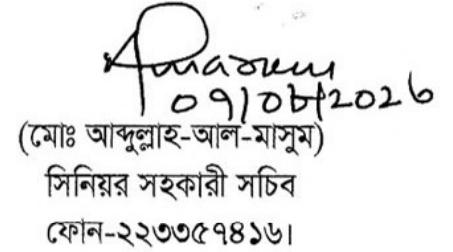 (মোঃ আব্দুল্লাহ-আল-মাসুম)
সিনিয়র সহকারী সচিব
ফোন-২২৩৩৫৭৪১৬।